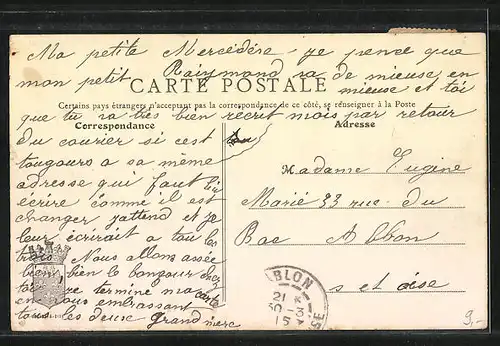 Ma petite Mercédére je pence que
mon petit Raiymond va de mieuse en
mieuse et toi
CARTE POSTALE
Certains pays étrangers n'acceptant pas la correspondance de ce côté, se renseigner à la Poste
que tu va très bien recrit mois par retour
Correspondance
du courier si cest
tougours a sa même
adresse qui faut lui
écrire comme il est
changer jattend et je
leur écrirait a tou les
trois. Nous allons assée
bien bien le bonjour chez
toi je termine ma carte
en vous embrassant
tous les deuse Grand mère
Adresse
Madame Eugine
Marié 33 rue du
Bac Ablon
s et oise
ABLON
21
30 -3
15
OISE
9,-